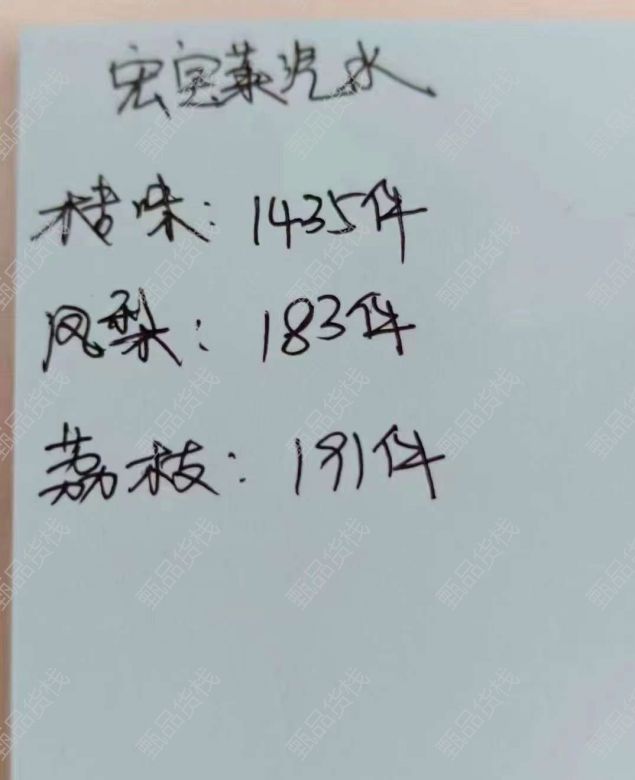 宏宝莱汽水
桔味：1435件
凤梨：183件
荔枝：191件
甄品货栈